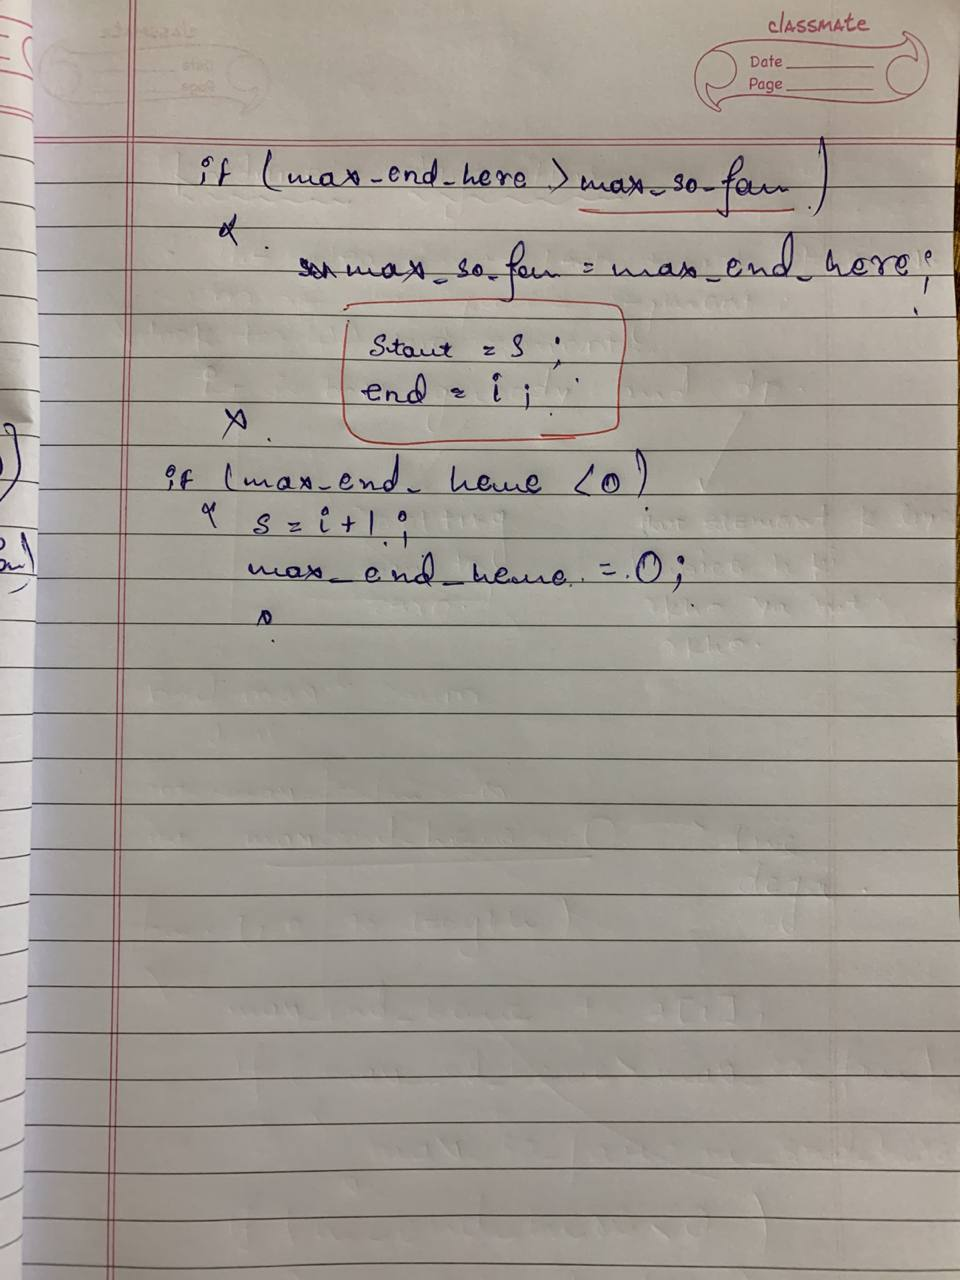 classmate
Date
Page
if (max_end_here > max_so_far)
{
max_so_far = max_end_here;
start = s ;
end = i ;
}
if (max_end_here < 0)
{ s = i + 1 ;
max_end_here = 0 ;
}